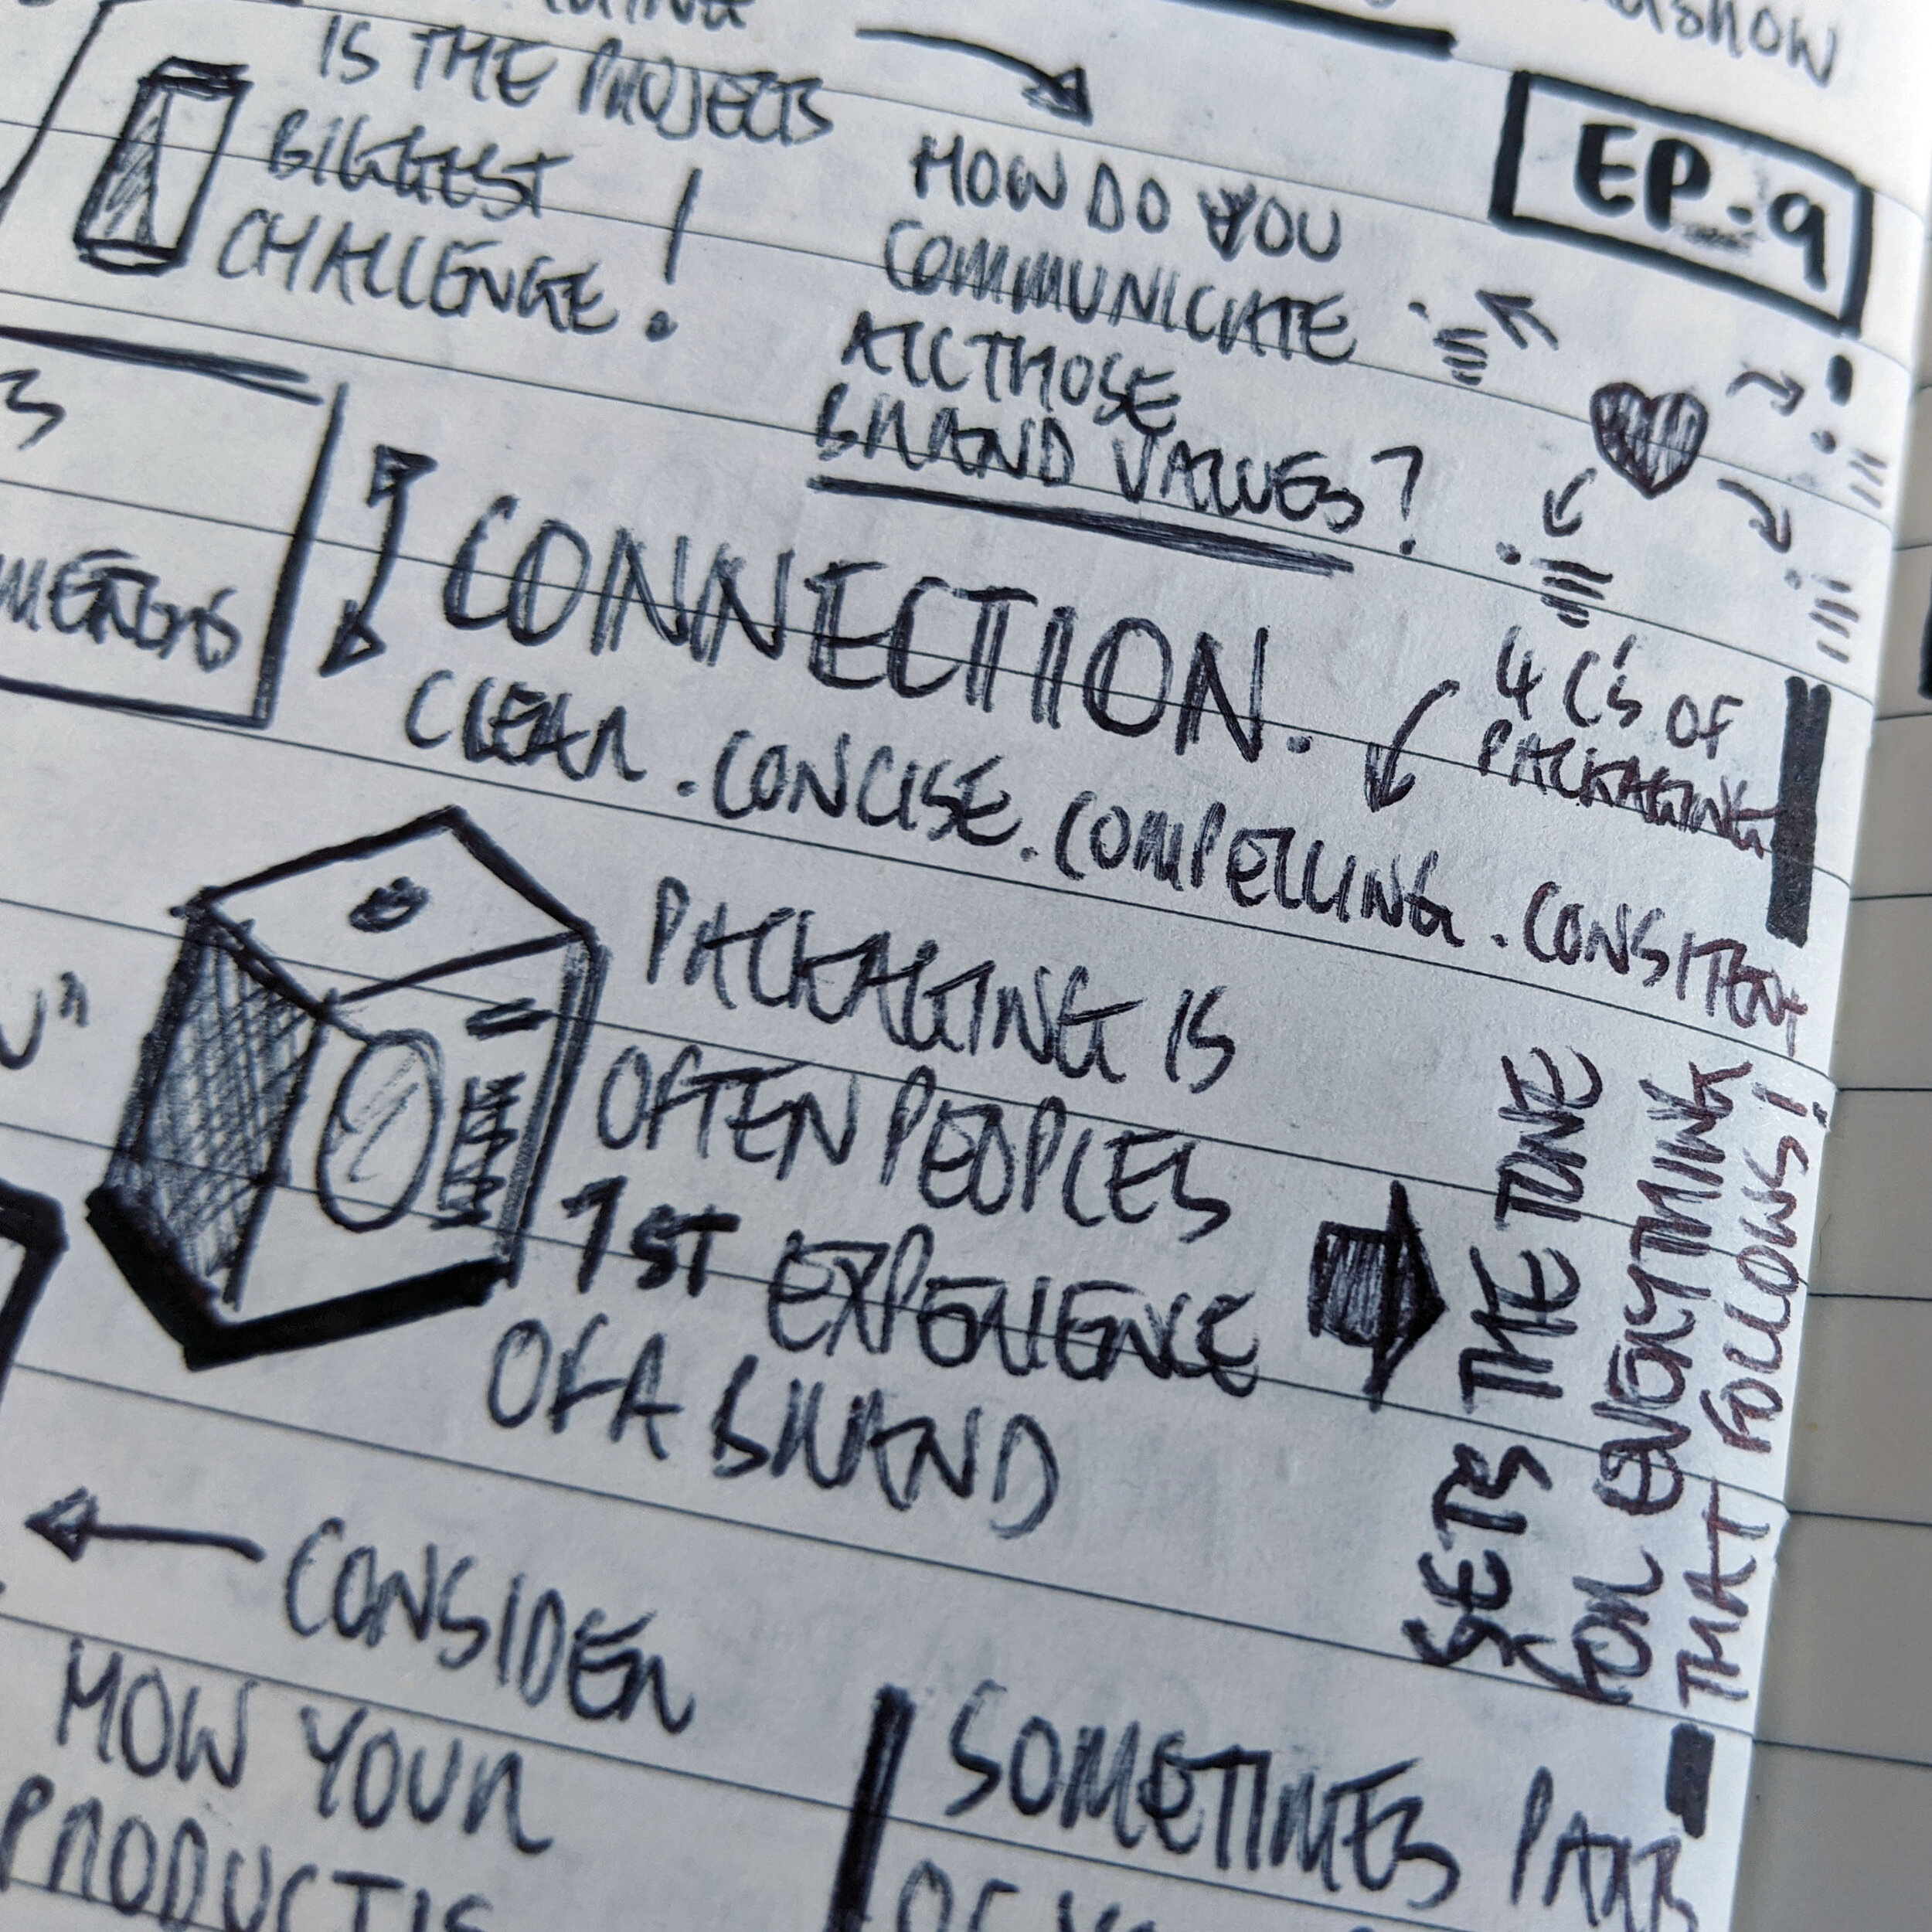 IS THE PROJECTS
BIGGEST
CHALLENGE!
EP-9
HOW DO YOU
COMMUNICATE
ALL THOSE
BRAND VALUES?
CONNECTION.
4 C'S OF
PACKAGING
CLEAR. CONCISE. COMPELLING. CONSITENT
PACKAGING IS
OFTEN PEOPLES
1ST EXPERIENCE
OF A BRAND
SETS THE TONE
FOR EVERYTHING
THAT FOLLOWS!
CONSIDER
HOW YOUR
PRODUCT IS
SOMETIMES